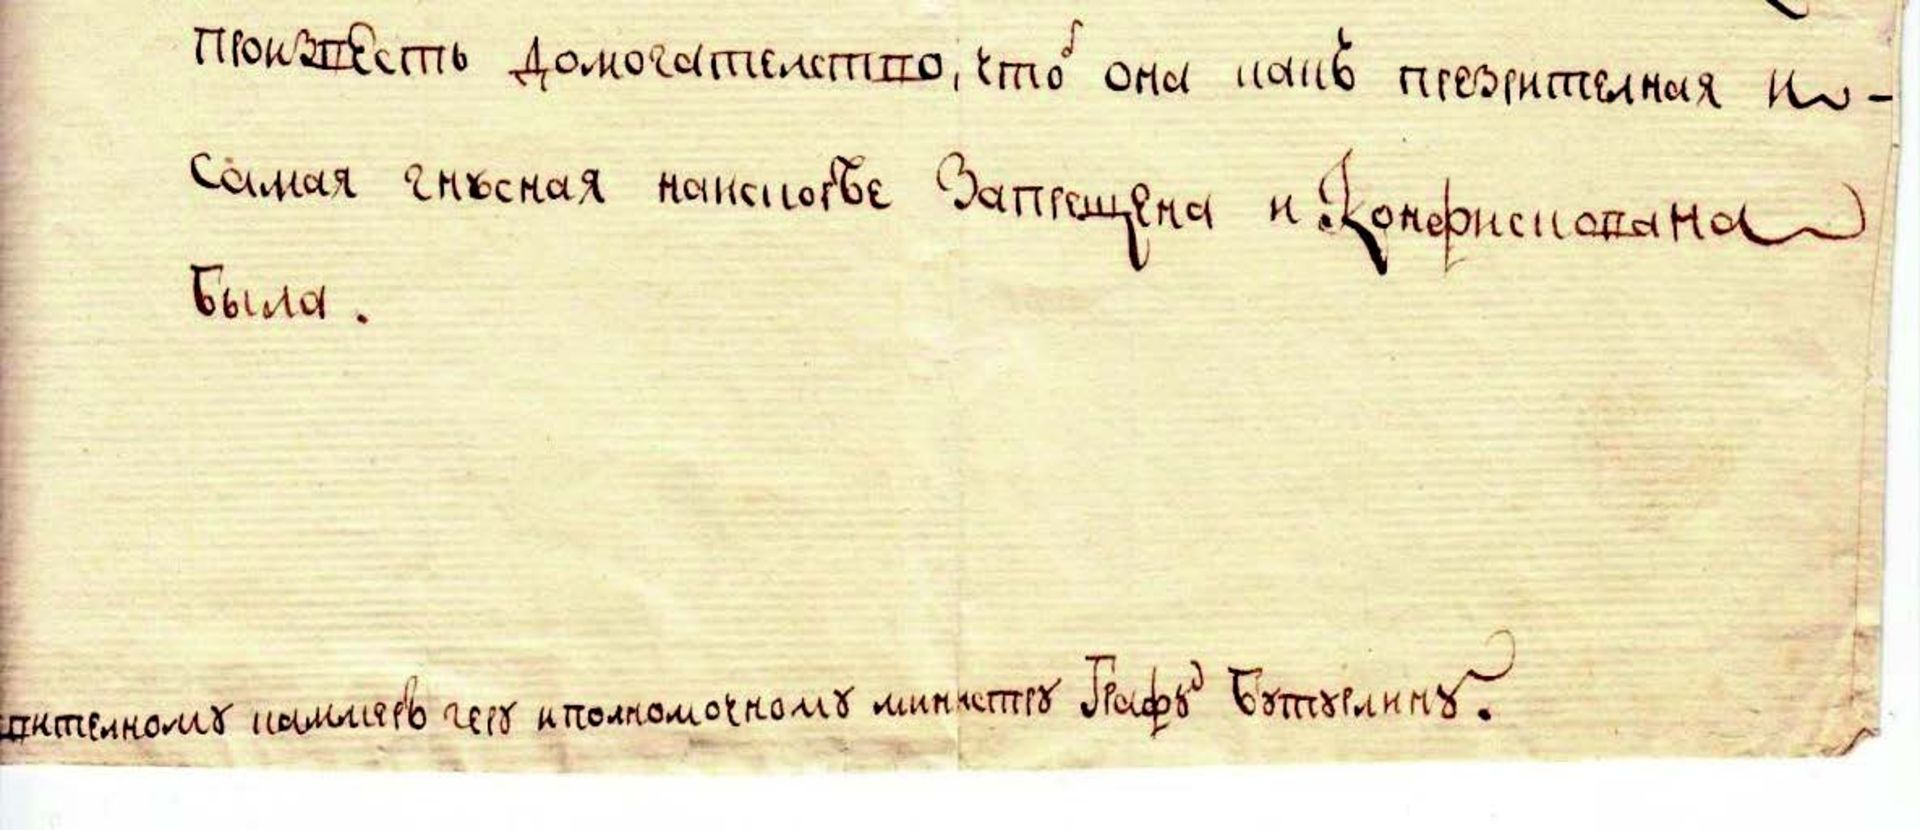 произвесть домогателство, чтоб она какъ презрителная и
самая гнусная наискорѣе запрещена и конфискована
была.
вителному каммеръ геру и полномочному министру Графу Бутурлину.